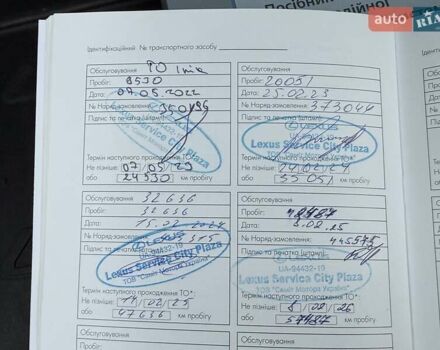 Посібник
auto RIA
Ідентифікаційний № транспортного засобу
Обслуговування ТО 1 рік
Пробіг: 9530
Дата: 07.05.2022
№ Наряд-замовлення: 350496
Підпис та печатка (штамп):
UA-94432-19
Lexus Service City Plaza
ТОВ "Саміт Моторз Україна"
Термін наступного проходження ТО*:
Не пізніше: 07/05/23
або 24530 км пробігу
Обслуговування
Пробіг: 20051
Дата: 25.02.23
№ Наряд-замовлення: 373044
Підпис та печатка (штамп):
LEXUS
UA-94432-19
Lexus Service City Plaza
ТОВ "Саміт Моторз Україна"
Термін наступного проходження ТО*:
Не пізніше: /02/24
або 35051 км пробігу
Обслуговування 32 636
Пробіг: 32 636
Дата: 15.02.2024
№ Наряд-замовлення:
Підпис та печатка
LEXUS
UA-94432-19
Lexus Service City Plaza
ТОВ "Саміт Моторз Україна"
Термін наступного проходження ТО*:
Не пізніше: 14/02/25
або 47636 км пробігу
Обслуговування
Пробіг:
Дата: .02.25
№ Наряд-замовлення: 445575
Підпис та печатка (штамп):
LEXUS
UA-94432-19
Lexus Service City Plaza
ТОВ "Саміт Моторз Україна"
Термін наступного проходження ТО*:
Не пізніше: 8/02/26
або км пробігу
Обслуговування
Обслуговування